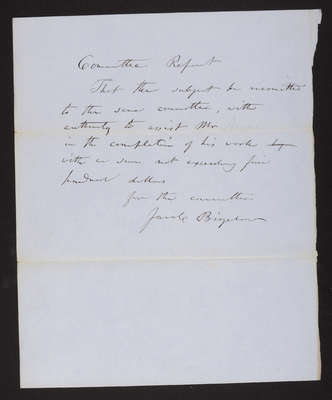 Committee Report
That the subject be recommitted
to the same committee, with
authority to assist Mr
in the completion of his work
with a sum not exceeding five
hundred dollars
for the committee
Jacob Bigelow